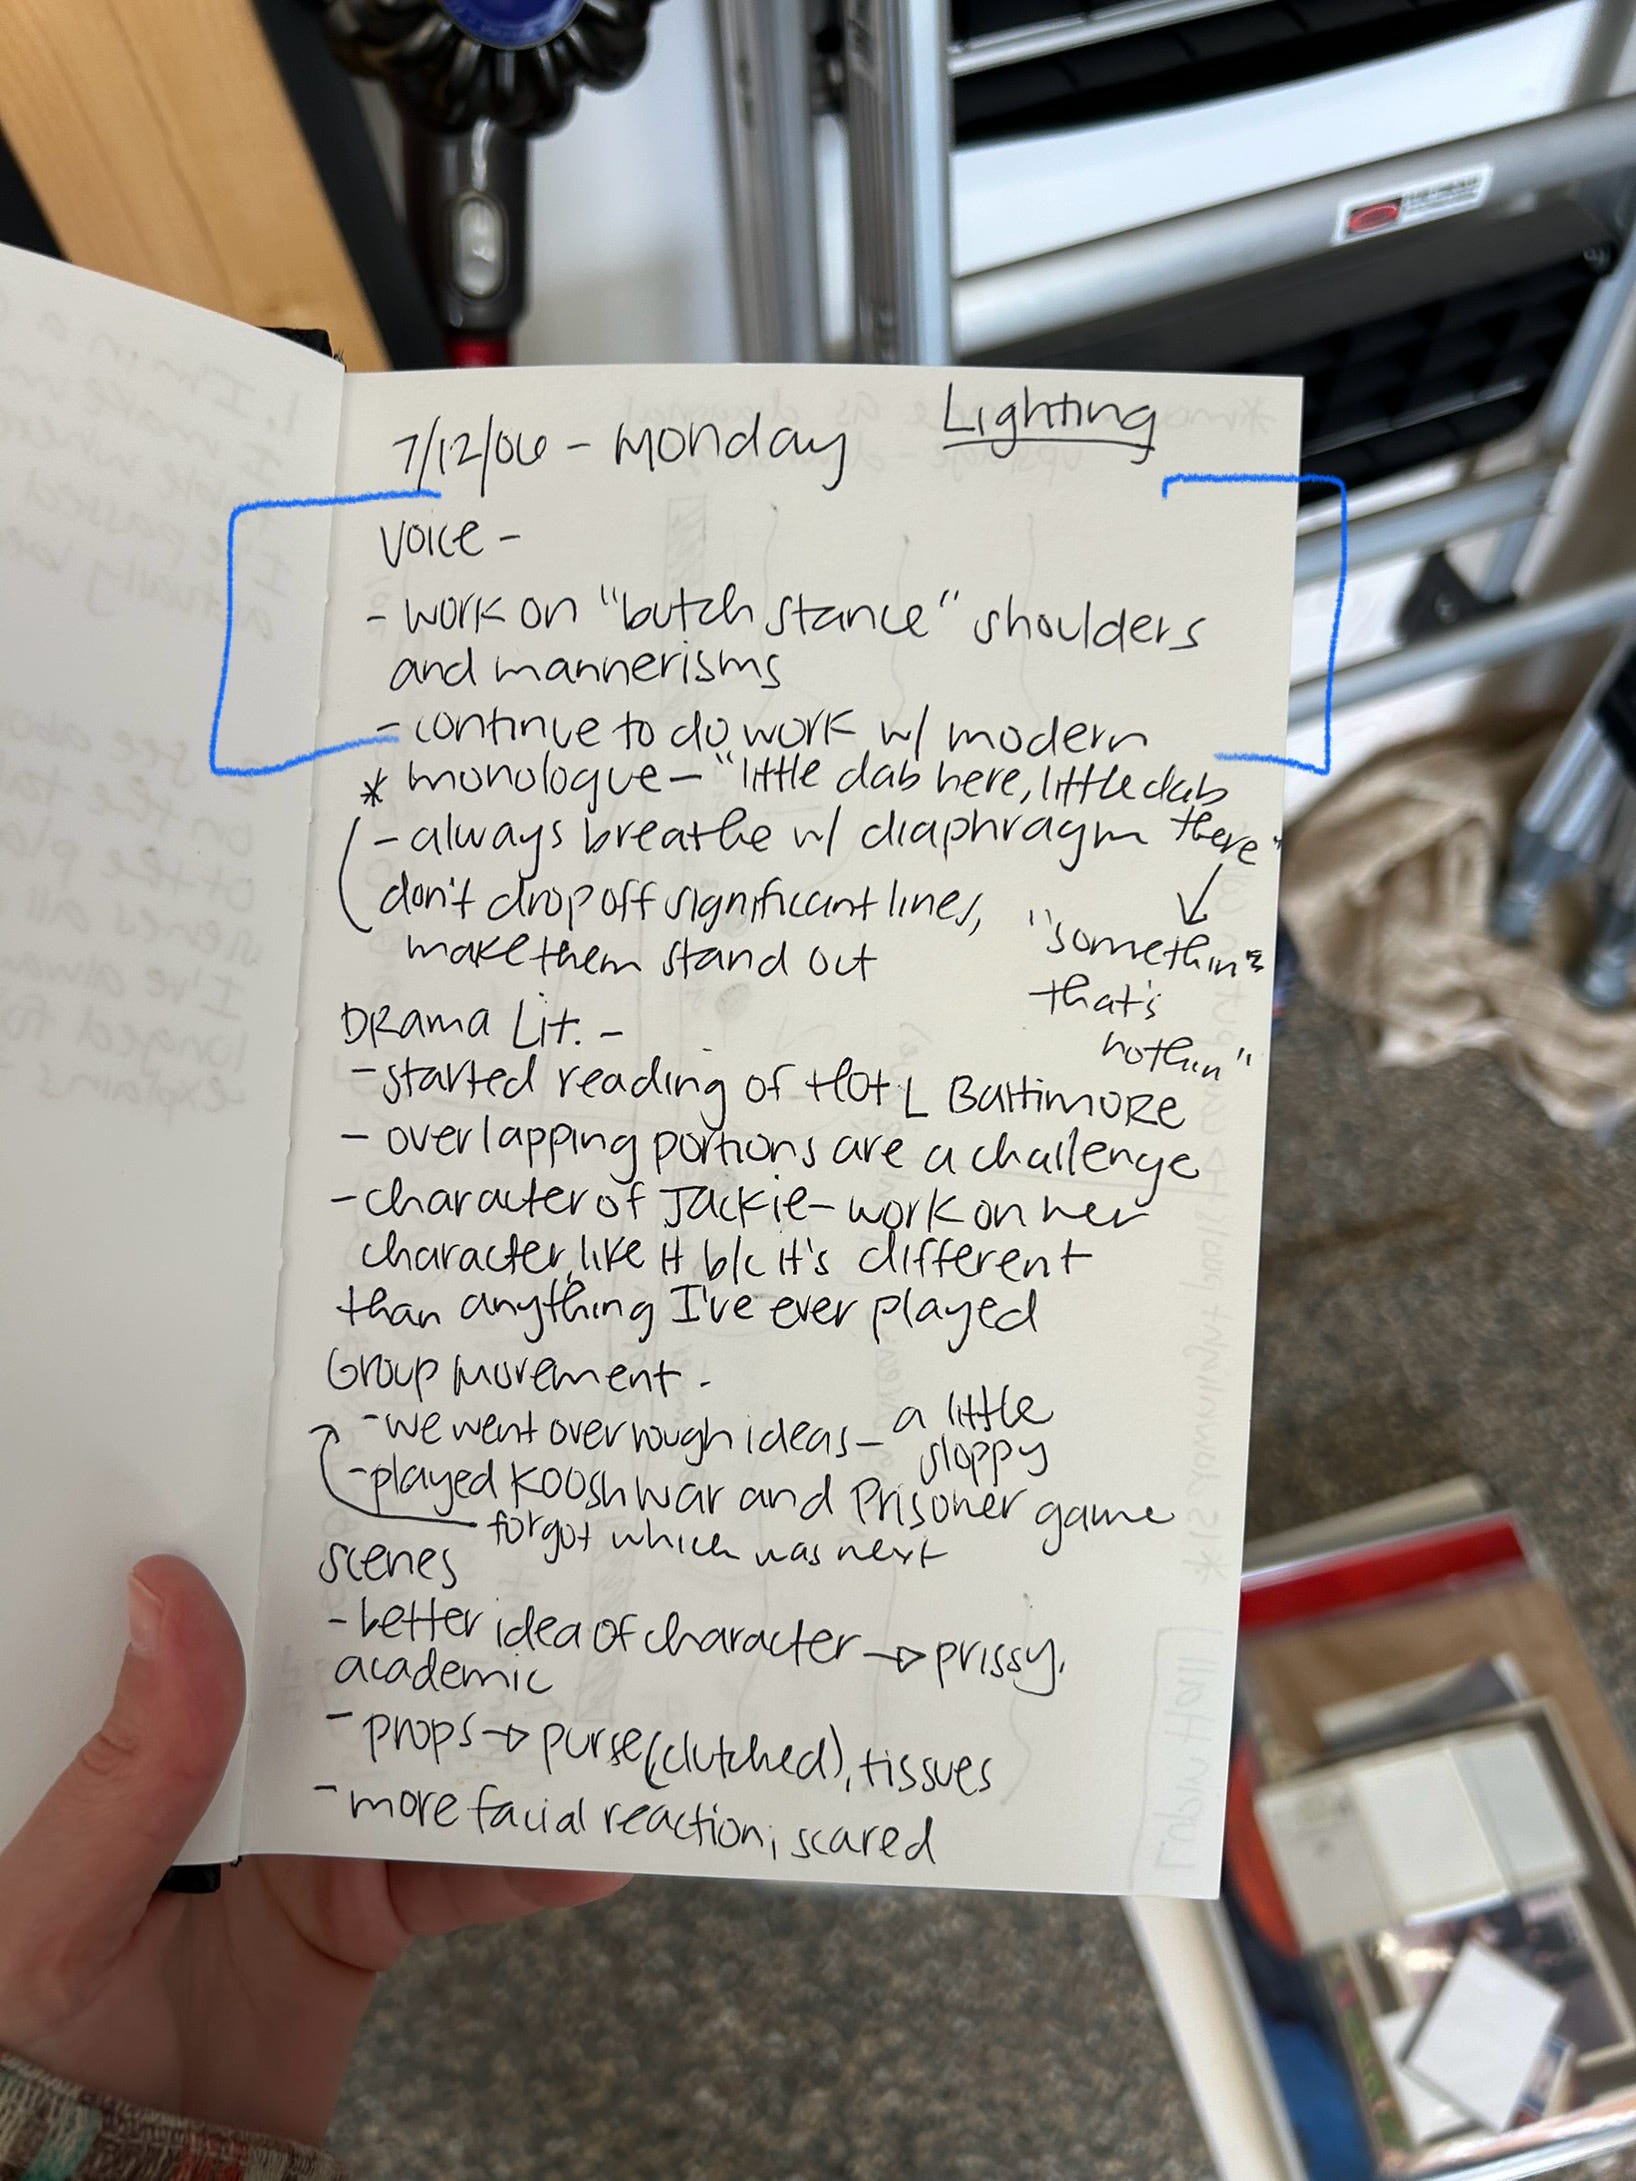 7/12/06 - Monday
Lighting
Voice -
- work on "butch stance" shoulders
and mannerisms
- continue to do work w/ modern
* monologue - "little dab here, little dab
there"
- always breathe w/ diaphragm
don't drop off significant lines,
make them stand out
"somethin"
that's
nothin"
Drama Lit. -
- started reading of Hot L Baltimore
- overlapping portions are a challenge
- character of Jackie - work on her
character, like it b/c it's different
than anything I've ever played
Group Movement -
- we went over rough ideas - a little
sloppy
- played Koosh war and Prisoner game
forgot which was next
Scenes
- better idea of character → prissy,
academic
- props → purse (clutched), tissues
- more facial reaction, scared